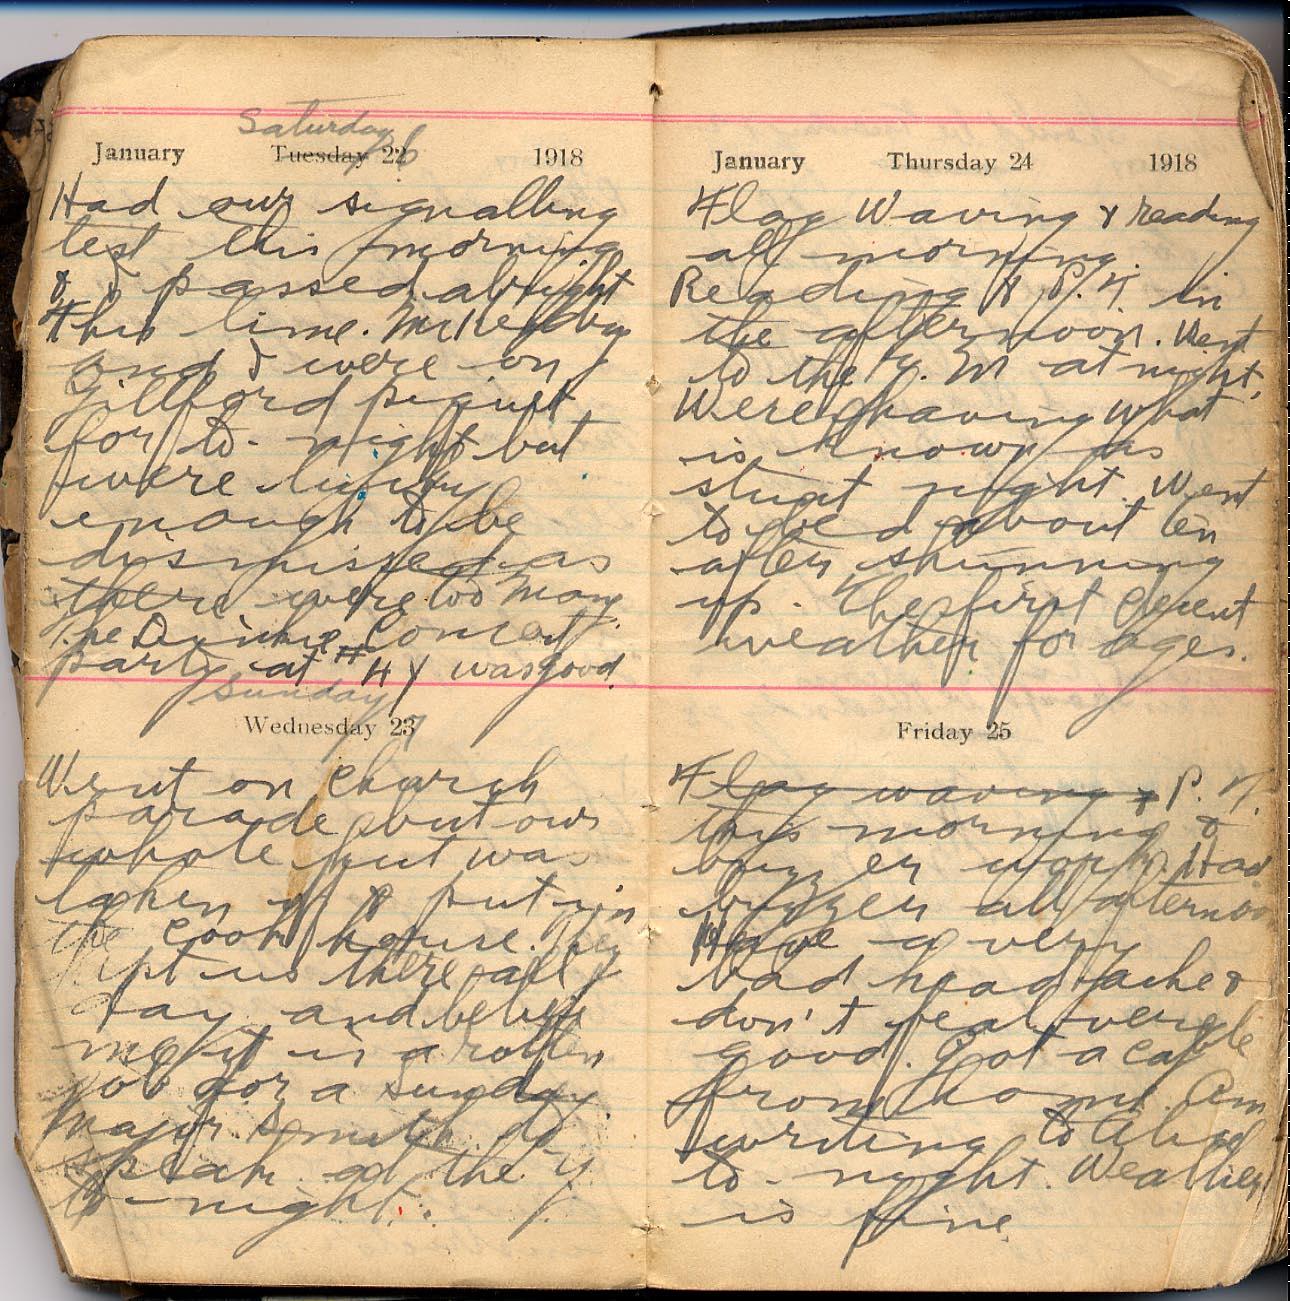 Saturday 26
January Tuesday 22 1918
Had our signalling
test this morning
& I passed alright
this time.
and I were on
Gillford piquet
for to-night but
were lucky
enough to be
dismissed as
there were too many.
The Concert
party at "H" Y was good.
Sunday 27
Wednesday 23
Went on Church
parade but our
whole hut was
taken of & put in
the cook house. They
kept us there all
day and believe
me it is a rotten
job for a Sunday.
Major Smith to
speak at the Y
to-night.
January Thursday 24 1918
Flag Waving & reading
all morning.
Reading & P.T. in
the afternoon. Went
to the Y.M at night.
Were having what
is known as
stunt night. Went
to bed about ten
after shinning
up. The first decent
weather for ages.
Friday 25
Flag waving & P.T.
this morning &
buzzer work. Had
buzzer all afternoo
Have a very
bad head ache &
don't feal very
good. Got a
from home. Am
writing to
to-night. Weather
is fine.